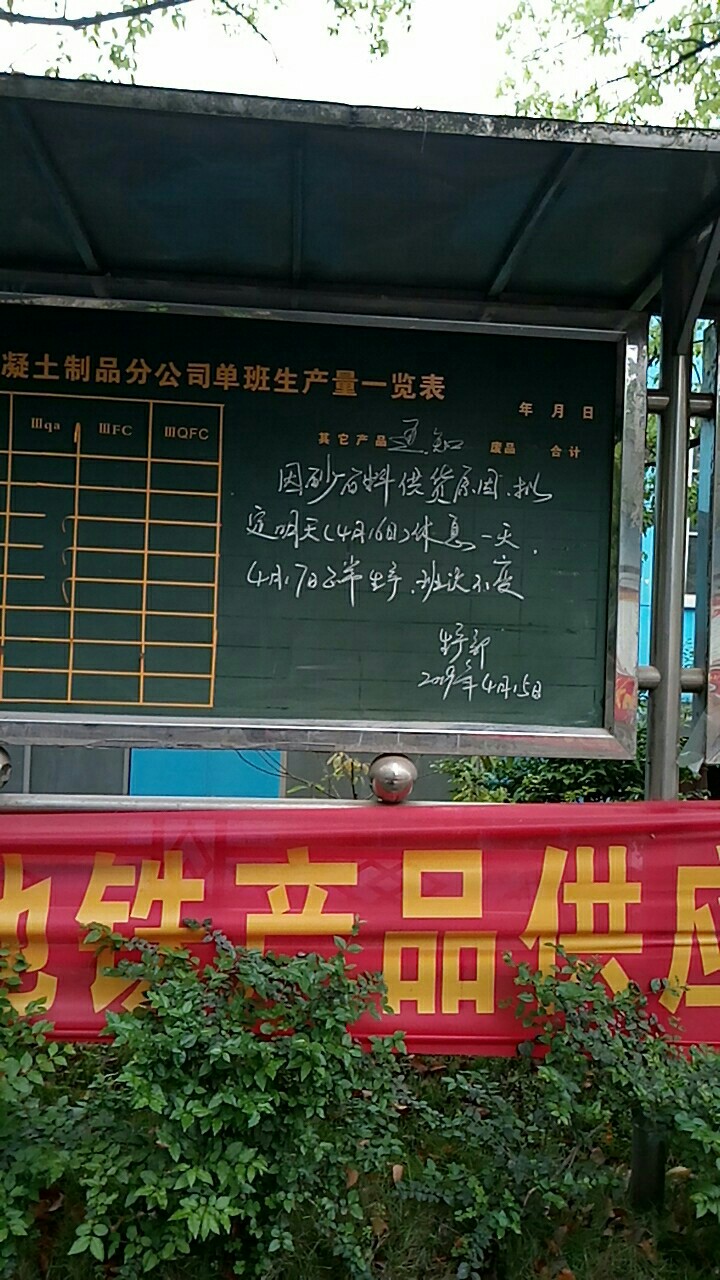 凝土制品分公司单班生产量一览表
年 月 日
Ⅲqa ⅢFC ⅢQFC
其它产品 通知 废品 合计
因砂石料供货原因,拟
定明天(4月16日)休息一天,
4月17日正常生产,班次不变
生产部
2019年4月15日
地铁产品供应